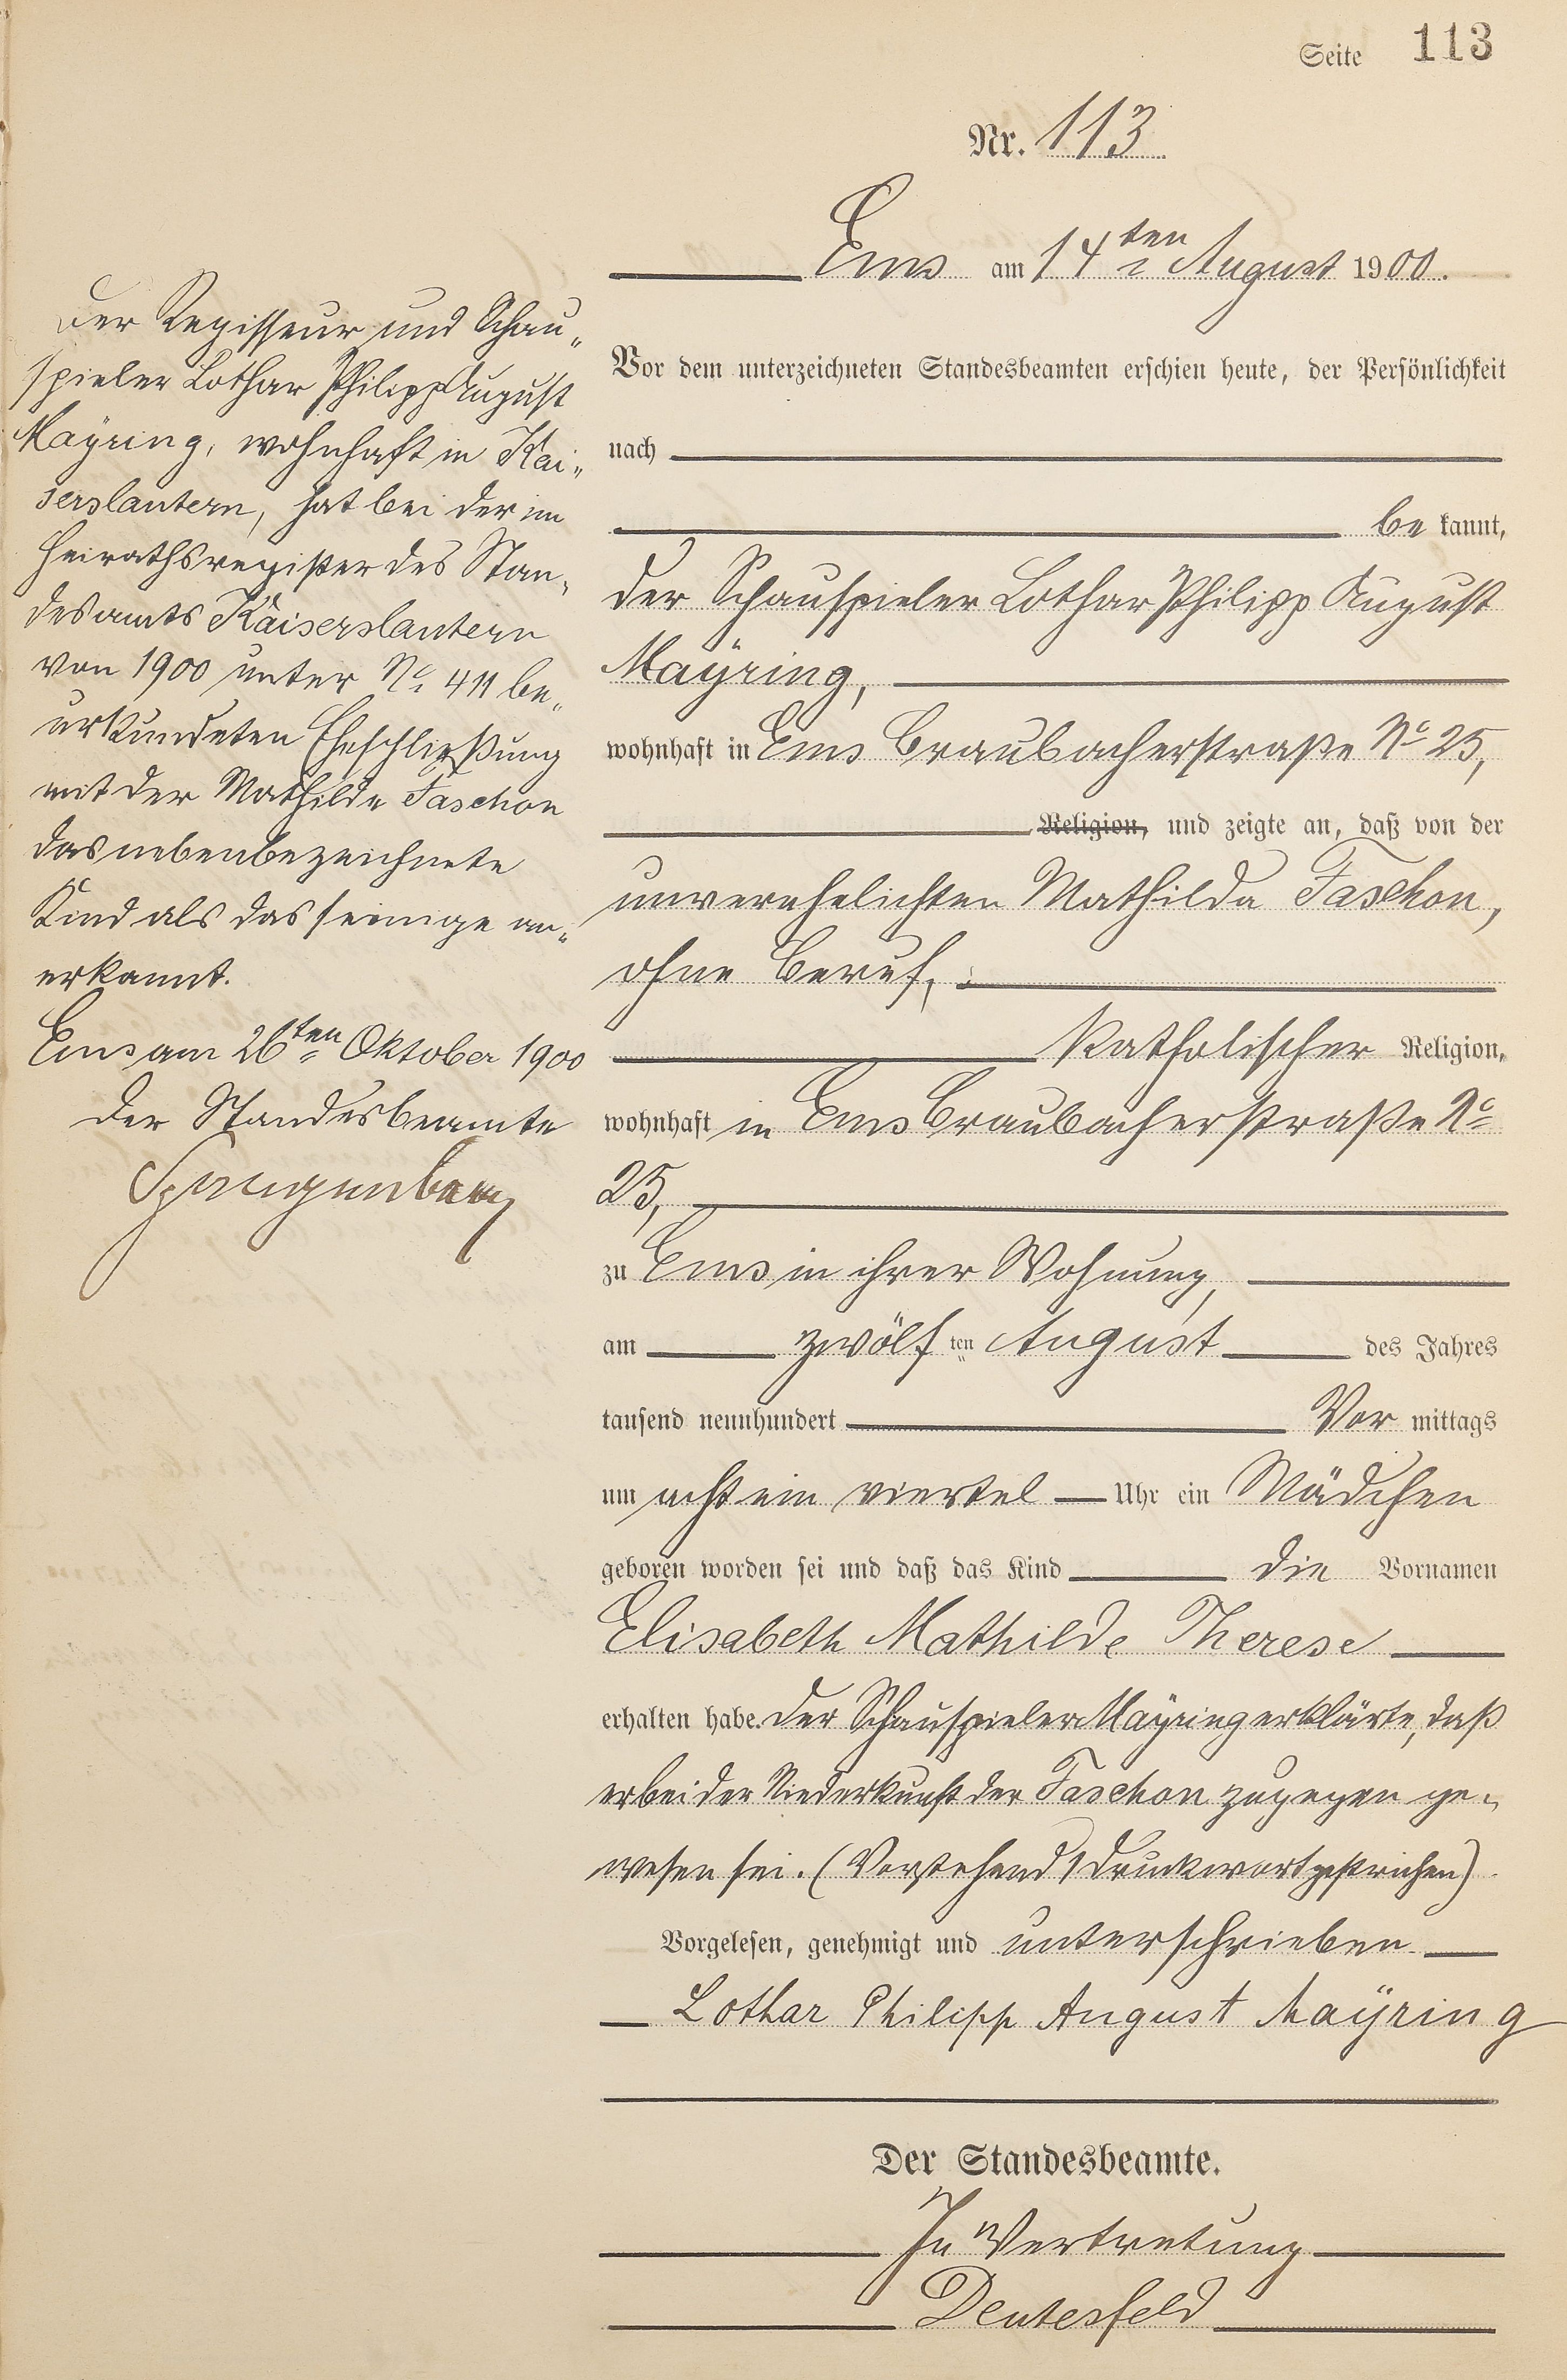 Seite 113
Nr. 113
Ems am 14ten August 1900.
Vor dem unterzeichneten Standesbeamten erschien heute, der Persönlichkeit
nach
be kannt,
der Schauspieler Lothar Philipp August
Maÿring,
wohnhaft in Ems Braubacherstraße No 25,
Religion, und zeigte an, daß von der
unverehelichten Mathilde Faschon,
ohne Beruf,
katholischer Religion,
wohnhaft in Ems Braubacherstraße No
25,
zu Ems in ihrer Wohnung,
am zwölf ten August des Jahres
tausend neunhundert Vor mittags
um acht ein viertel Uhr ein Mädchen
geboren worden sei und daß das Kind die Vornamen
Elisabeth Mathilde Therese
erhalten habe. Der Schauspieler Maÿring erklärte, daß
er bei der Niederkunft der Faschon zugegen ge-
wesen sei. (Vorstehend 1 Druckwort gestrichen)
Vorgelesen, genehmigt und unterschrieben
Lothar Philipp August Maÿring
Der Standesbeamte.
In Vertretung
Deutesfeld
Der Regisseur und Schau-
spieler Lothar Philipp August
Maÿring, wohnhaft in Kai-
serslautern, hat bei der im
Heirathsregister des Stan-
desamts Kaiserslautern
von 1900 unter No. 411 be-
urkundeten Eheschließung
mit der Mathilde Faschon
das nebenbezeichnete
Kind als das seinige an-
erkannt.
Ems am 26ten Oktober 1900
Der Standesbeamte
Spangenberg